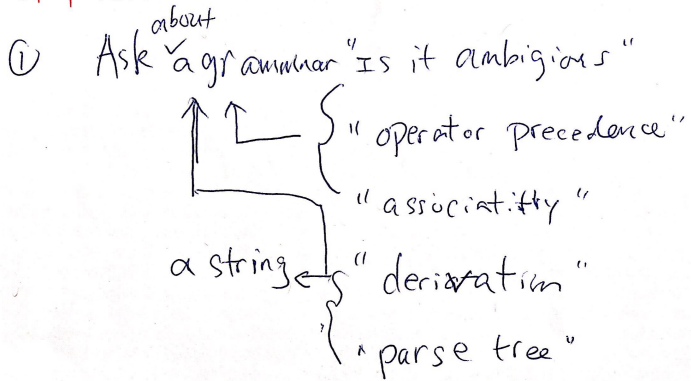 ① Ask about a grammar "Is it ambigious"
"operator precedence"
"associatitty"
a string "derivation"
"parse tree"